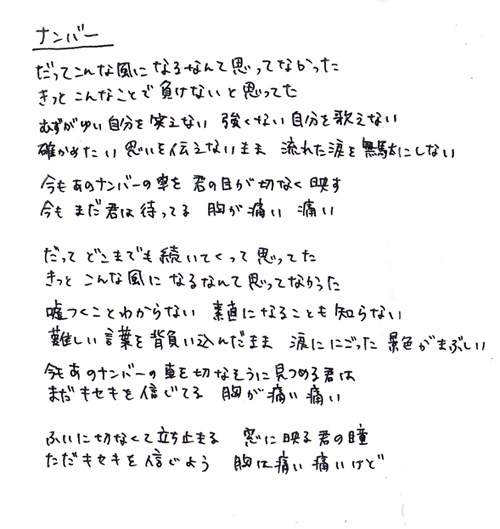 ナンバー
だってこんな風になるなんて思ってなかった
きっとこんなことで負けないと思ってた
むずがゆい自分を笑えない 強くない自分を歌えない
確かめたい思いを伝えないまま 流れた涙を無駄にしない
今もあのナンバーの車を 君の目が切なく映す
今もまだ君は待ってる 胸が痛い 痛い
だって どこまでも続いてくって思ってた
きっと こんな風になるなんて思ってなかった
嘘つくことわからない 素直になることも知らない
難しい言葉を背負い込んだまま 涙ににごった景色がまぶしい
今もあのナンバーの車を切なそうに見つめる君は
まだキセキを信じてる 胸が痛い痛い
ふいに切なくて立ち止まる 窓に映る君の瞳
ただキセキを信じよう 胸は痛い痛いけど